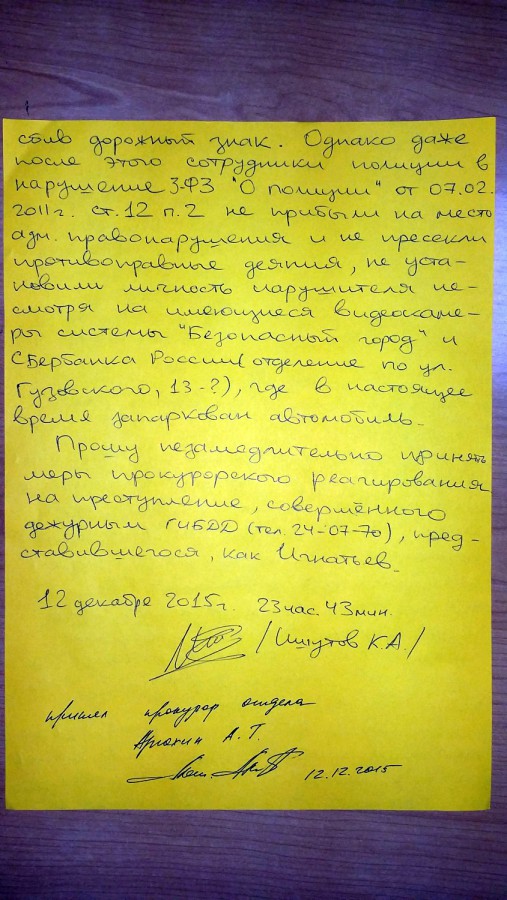 сбив дорожный знак. Однако даже
после этого сотрудники полиции в
нарушение 3-ФЗ "О полиции" от 07.02.
2011г. ст.12 п.2 не прибыли на место
адм. правонарушения и не пресекли
противоправные деяния, не уста-
новили личность нарушителя не-
смотря на имеющиеся видеокаме-
ры системы "Безопасный город" и
Сбербанка России (отделение по ул.
Гузовского, 13-?), где в настоящее
время запаркован автомобиль.
Прошу незамедлительно принять
меры прокурорского реагирования
на преступление, совершённого
дежурным ГИБДД (тел. 24-07-70), пред-
ставившегося, как Игнатьев.
12 декабре 2015г. 23час. 43мин.
/Ишутов К.А./
принял прокурор отдела
А. Т.
12.12.2015